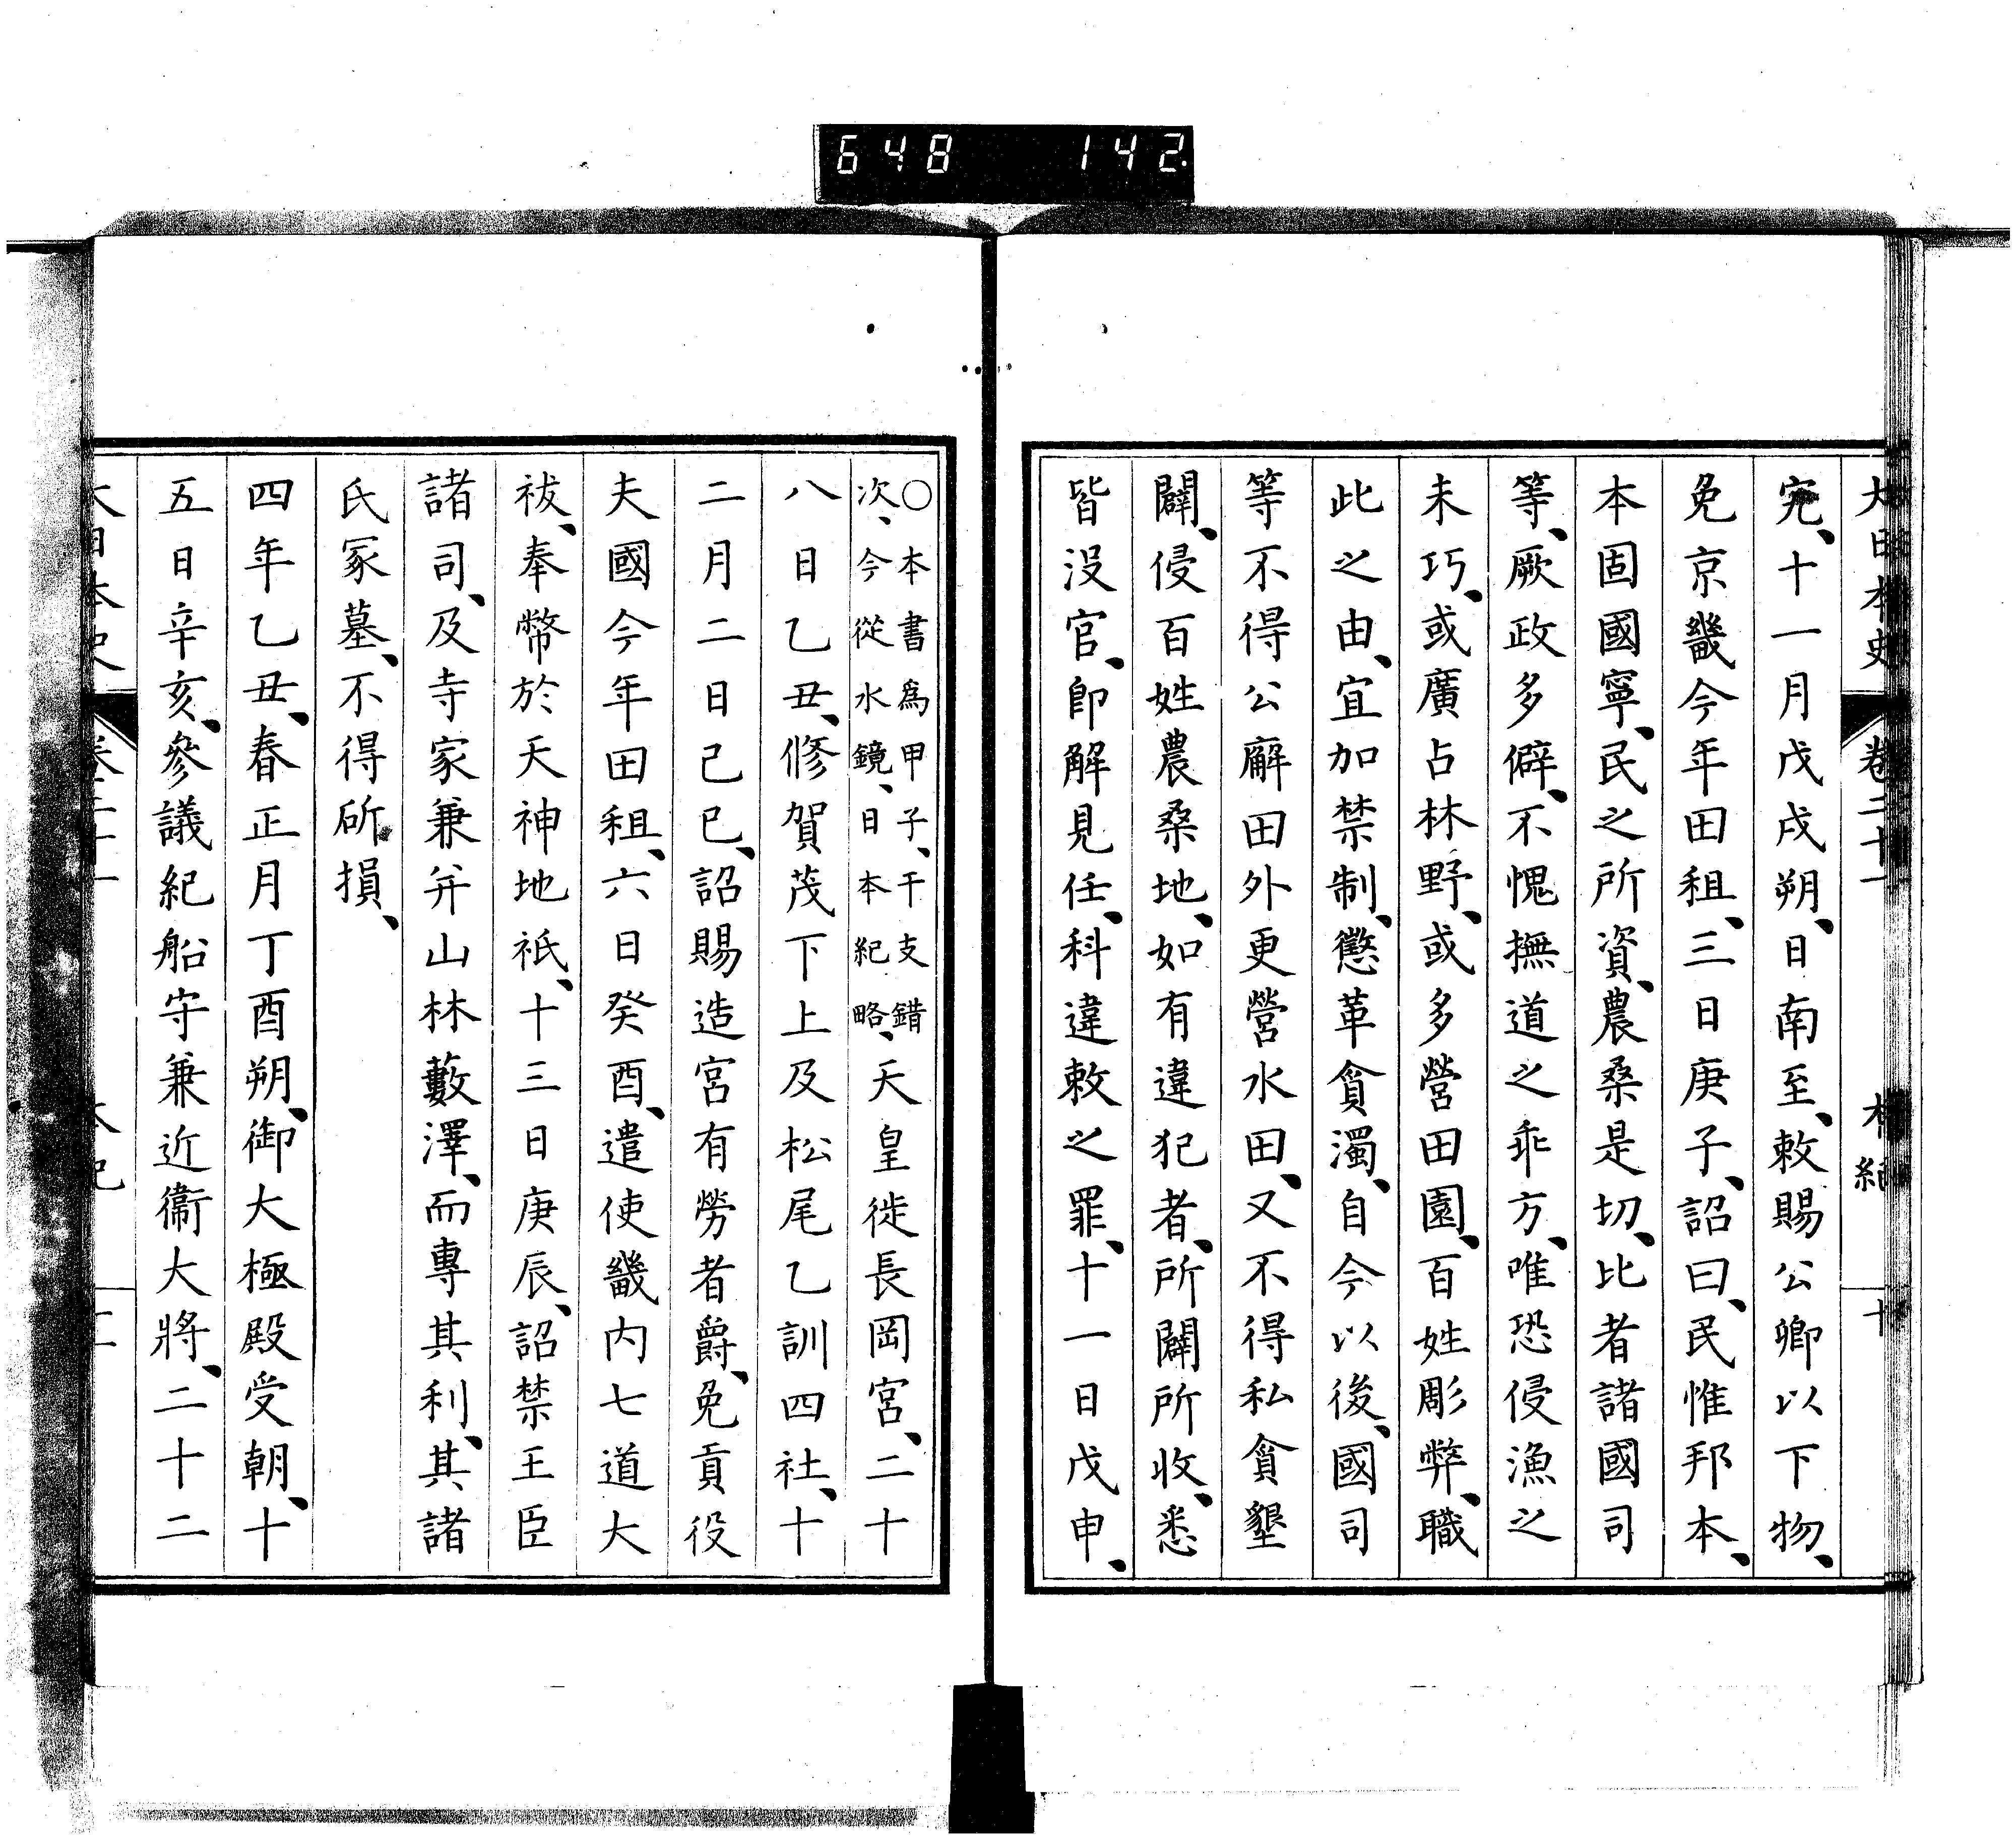 648 142
大日本史 卷二十一 本紀 十
宄、十一月戊戌朔、日南至、敕賜公卿以下物、
免京畿今年田租、三日庚子、詔曰、民惟邦本、
本固國寧、民之所資、農桑是切、比者諸國司
等、厥政多僻、不愧撫道之乖方、唯恐侵漁之
未巧、或廣占林野、或多營田園、百姓彫弊、職
此之由、宜加禁制、懲革貪濁、自今以後、國司
等不得公廨田外更營水田、又不得私貪墾
闢、侵百姓農桑地、如有違犯者、所闢所收、悉
皆沒官、卽解見任、科違敕之罪、十一日戊申、
○本書爲甲子、干支錯
次、今從水鏡、日本紀略、天皇徙長岡宮、二十
八日乙丑、修賀茂下上及松尾乙訓四社、十
二月二日己巳、詔賜造宮有勞者爵、免貢役
夫國今年田租、六日癸酉、遣使畿内七道大
祓、奉幣於天神地祇、十三日庚辰、詔禁王臣
諸司、及寺家兼并山林藪澤、而專其利、其諸
氏冢墓、不得斫損、
四年乙丑、春正月丁酉朔、御大極殿受朝、十
五日辛亥、參議紀船守兼近衞大將、二十二
大日本史 卷二十一 本紀